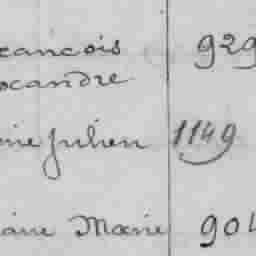 rancois 929
ocandre
rie Julien 1149
aire Marie 904